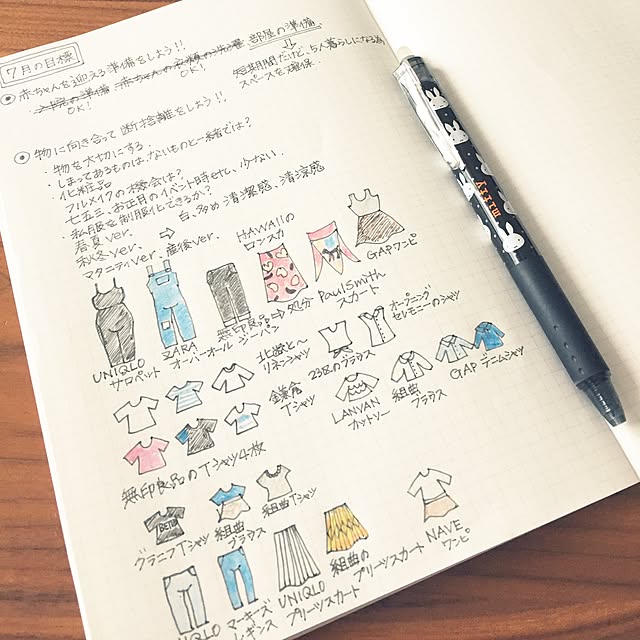 7月の目標
赤ちゃんを迎える準備をしよう!!
入院の準備 赤ちゃんの衣類の洗濯 部屋の準備
OK! OK!
短期間だけど、5人暮らしになる為
スペースを確保
物に向き合って断捨離をしよう!!
・物を大切にする
・しまってあるものは、ないものと一緒では?
・化粧品
フルメイクの機会は?
七五三、お正月のイベント時せと、少ない.
・私服を制服化できるか? 白、多め 清潔感、清涼感
春夏ver.
秋冬ver.
マタニティver. 産後ver.
HAWAIIの
ロンスカ
GAPワンピ
Paul Smith
スカート
UNIQLO
サロペット
ZARA
オーバーオール
無印良品⇒処分
ジーパン
オープニング
セレモニーのシャツ
北欧と〜
リネンシャツ
23区のブラウス
GAP デニムシャツ
鎌倉
Tシャツ
LANVAN
カットソー
組曲
ブラウス
無印良品のTシャツ4枚
グラニフTシャツ
組曲
ブラウス
組曲Tシャツ
NAVE
ワンピ
UNIQLO
マーキーズ
レギンス
UNIQLO
プリーツスカート
組曲の
プリーツスカート
BETTY
miffy